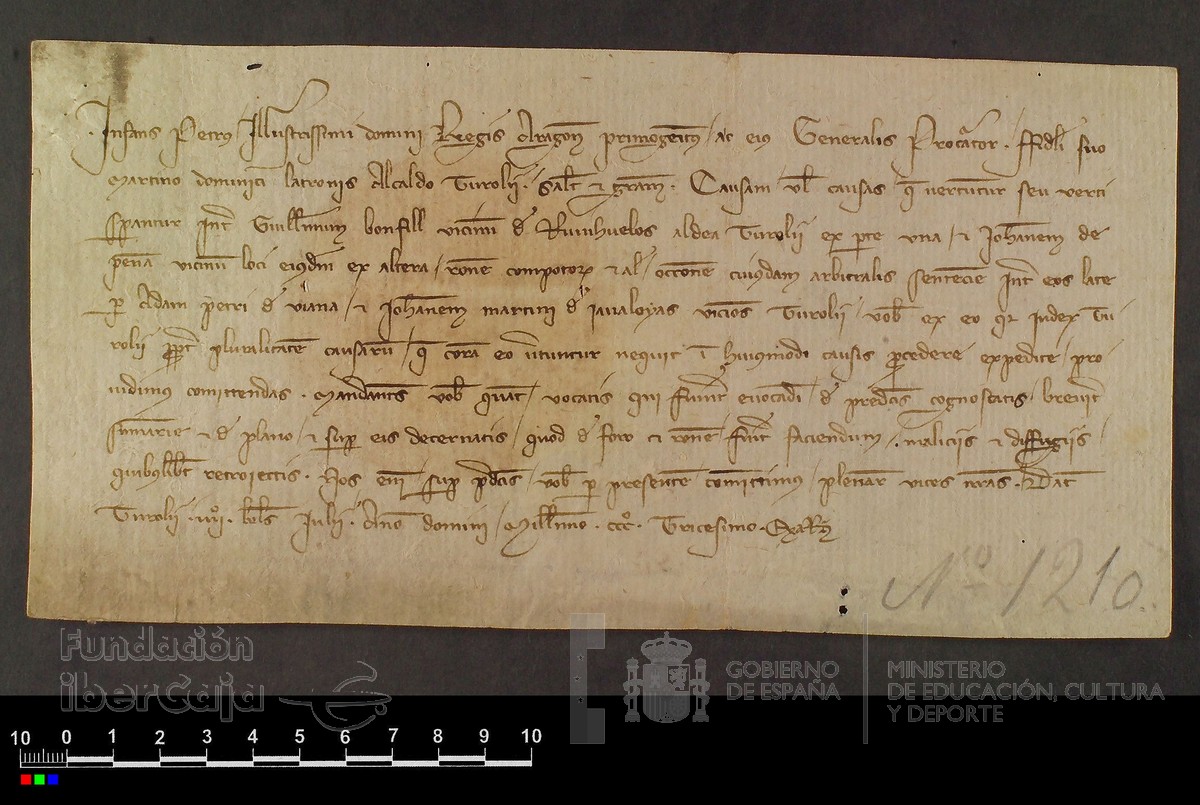 Infans Petrus Illustrissimi domini Regis Aragon primogenitus ac eius Generalis Procurator. Fideli suo
Martino dominici latronis Alcaldo Turolii. Salt et gram. Causam vel causas que vertuntur seu verti
sperantur Int Guillmum bonfill vicinum de Ruvihuelos aldea Turolii ex parte una et Iohanem de
pena vicinum loci eiusdem ex altera rone compotorum et al occone cuiusdam arbitralis sentencie Int eos late
per Adam petri de viana et Iohanem martini de iavaloyas vicinos Turolii vob ex eo qr Iudex Tu
rolii propt pluralitatem causarum que cora eo vertuntur nequit in huiusmodi causis procedere expedite pro
vidimus comittendas. Mandants vob quat vocatis qui fuint evocadi de predcis cognoscatis brevit
sumarie et de plano et super eis decernatis quod de foro et rone fuit faciendum maliciis et diffugiis
quibuslibt retroiectis. Nos eni super pdcis vob per presente comittimus plenar vices nras. Dat
Turolii kls Iulii Ano domini Millimo. ccc. Tricesimo.
Nº 1210.
Fundación
iberCaja
GOBIERNO
DE ESPAÑA
MINISTERIO
DE EDUCACIÓN, CULTURA
Y DEPORTE
10 0 1 2 3 4 5 6 7 8 9 10